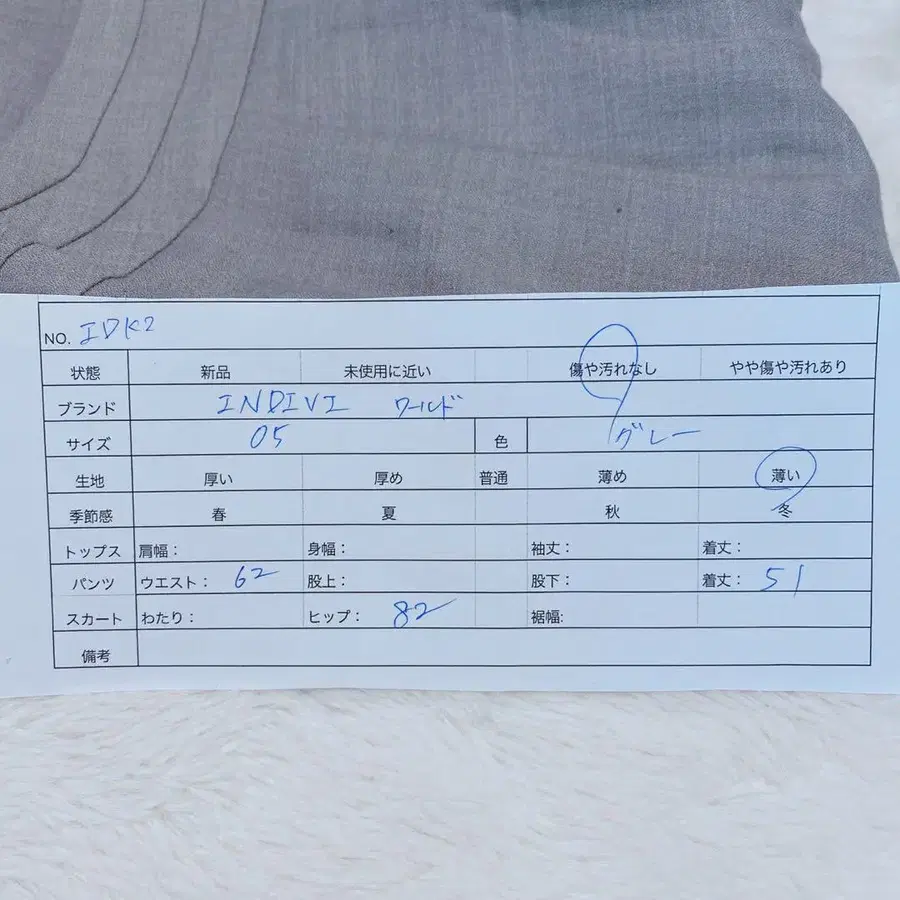 NO. IDK2
状態 新品 未使用に近い 傷や汚れなし やや傷や汚れあり
ブランド INDIVI ワールド
サイズ 05 色 グレー
生地 厚い 厚め 普通 薄め 薄い
季節感 春 夏 秋 冬
トップス 肩幅： 身幅： 袖丈： 着丈：
パンツ ウエスト： 62 股上： 股下： 着丈： 51
スカート わたり： ヒップ： 82 裾幅:
備考